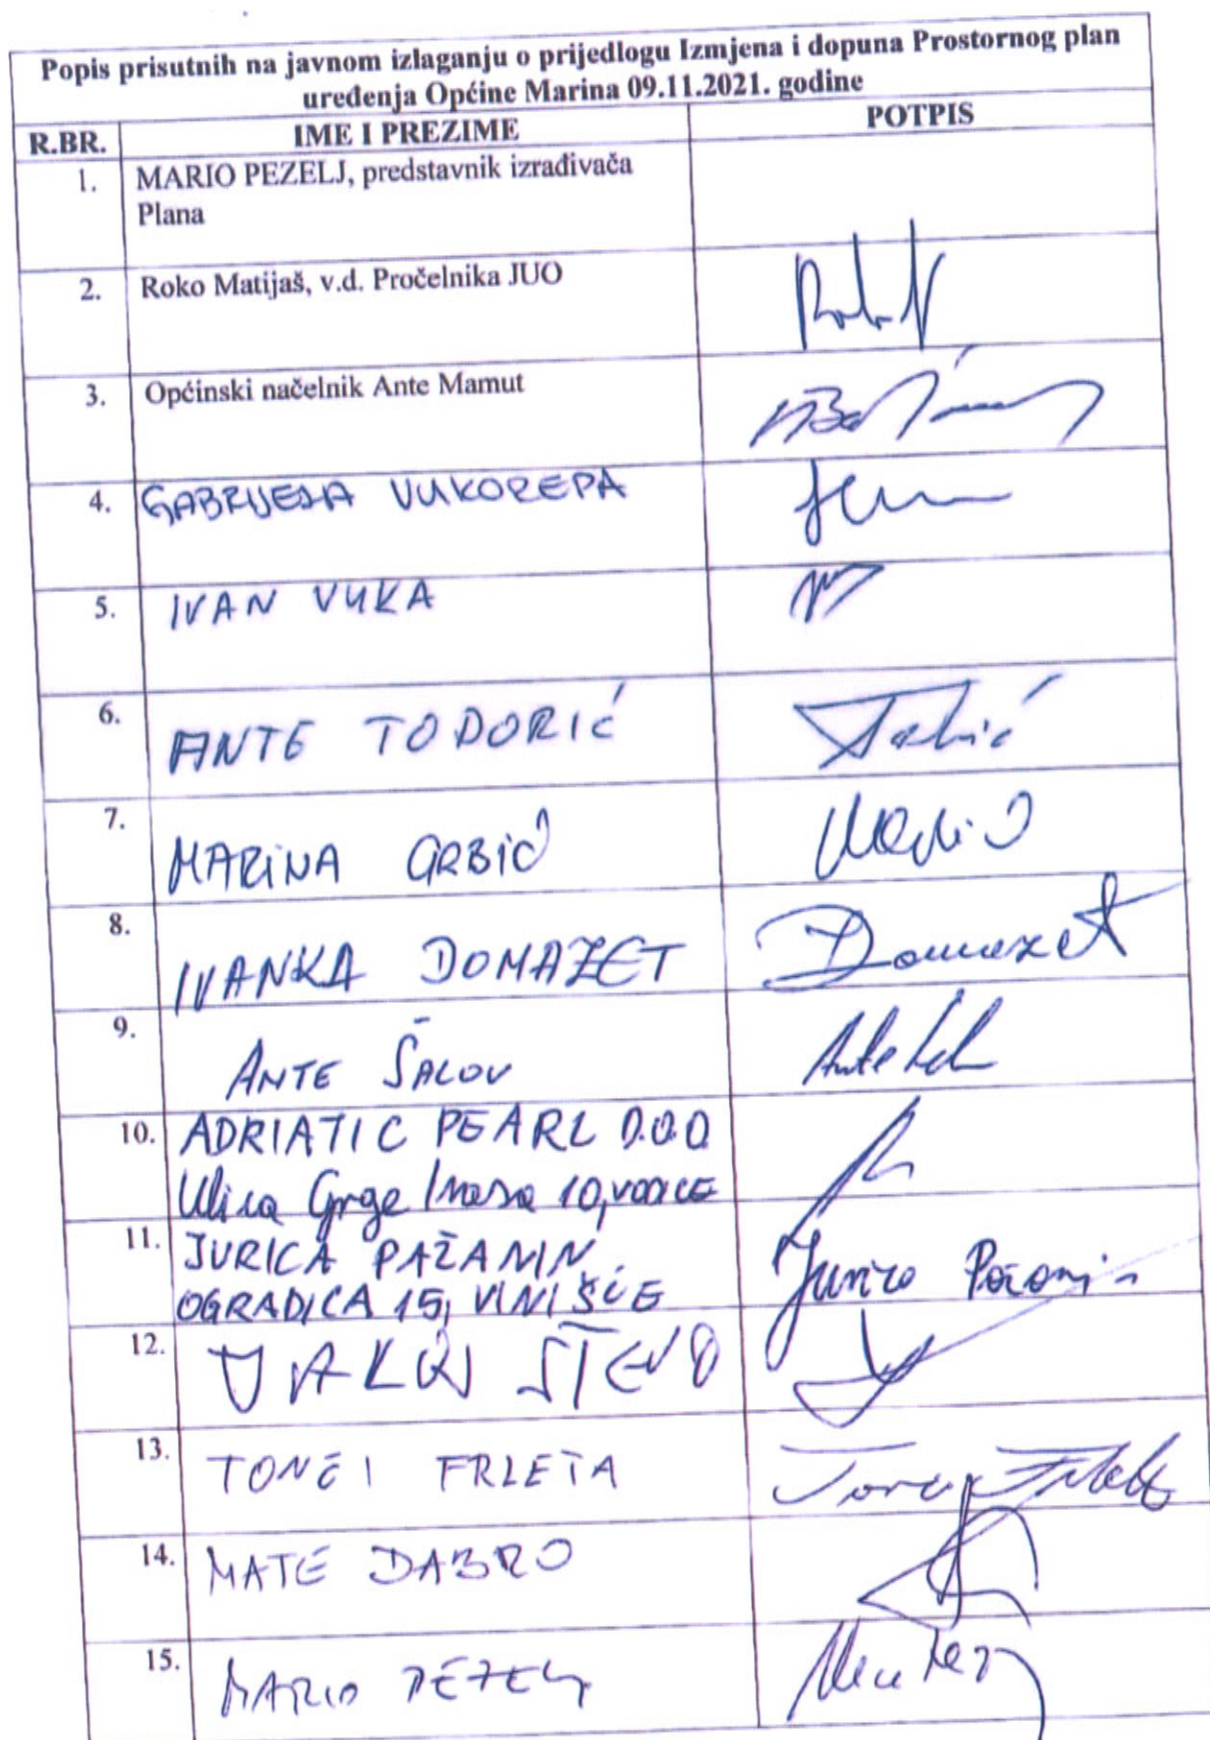 Popis prisutnih na javnom izlaganju o prijedlogu Izmjena i dopuna Prostornog plan
uređenja Općine Marina 09.11.2021. godine
R.BR. IME I PREZIME POTPIS
1. MARIO PEZELJ, predstavnik izrađivača
Plana
2. Roko Matijaš, v.d. Pročelnika JUO
3. Općinski načelnik Ante Mamut
4. GABRIJELA VUKOREPA
5. IVAN VUKA
6. ANTE TODORIĆ
7. MARINA GRBIĆ
8. IVANKA DOMAZET Domazet
9. ANTE ŠALOV Ante
10. ADRIATIC PEARL D.O.O
Ulica Grge 10, VODICE
11. JURICA PAŽANIN Jurica Pažanin
OGRADICA 15, VINIŠĆE
12. STEVO
13. TONĆI FRLETA
14. MATE DABRO
15. MARIO PEZELJ